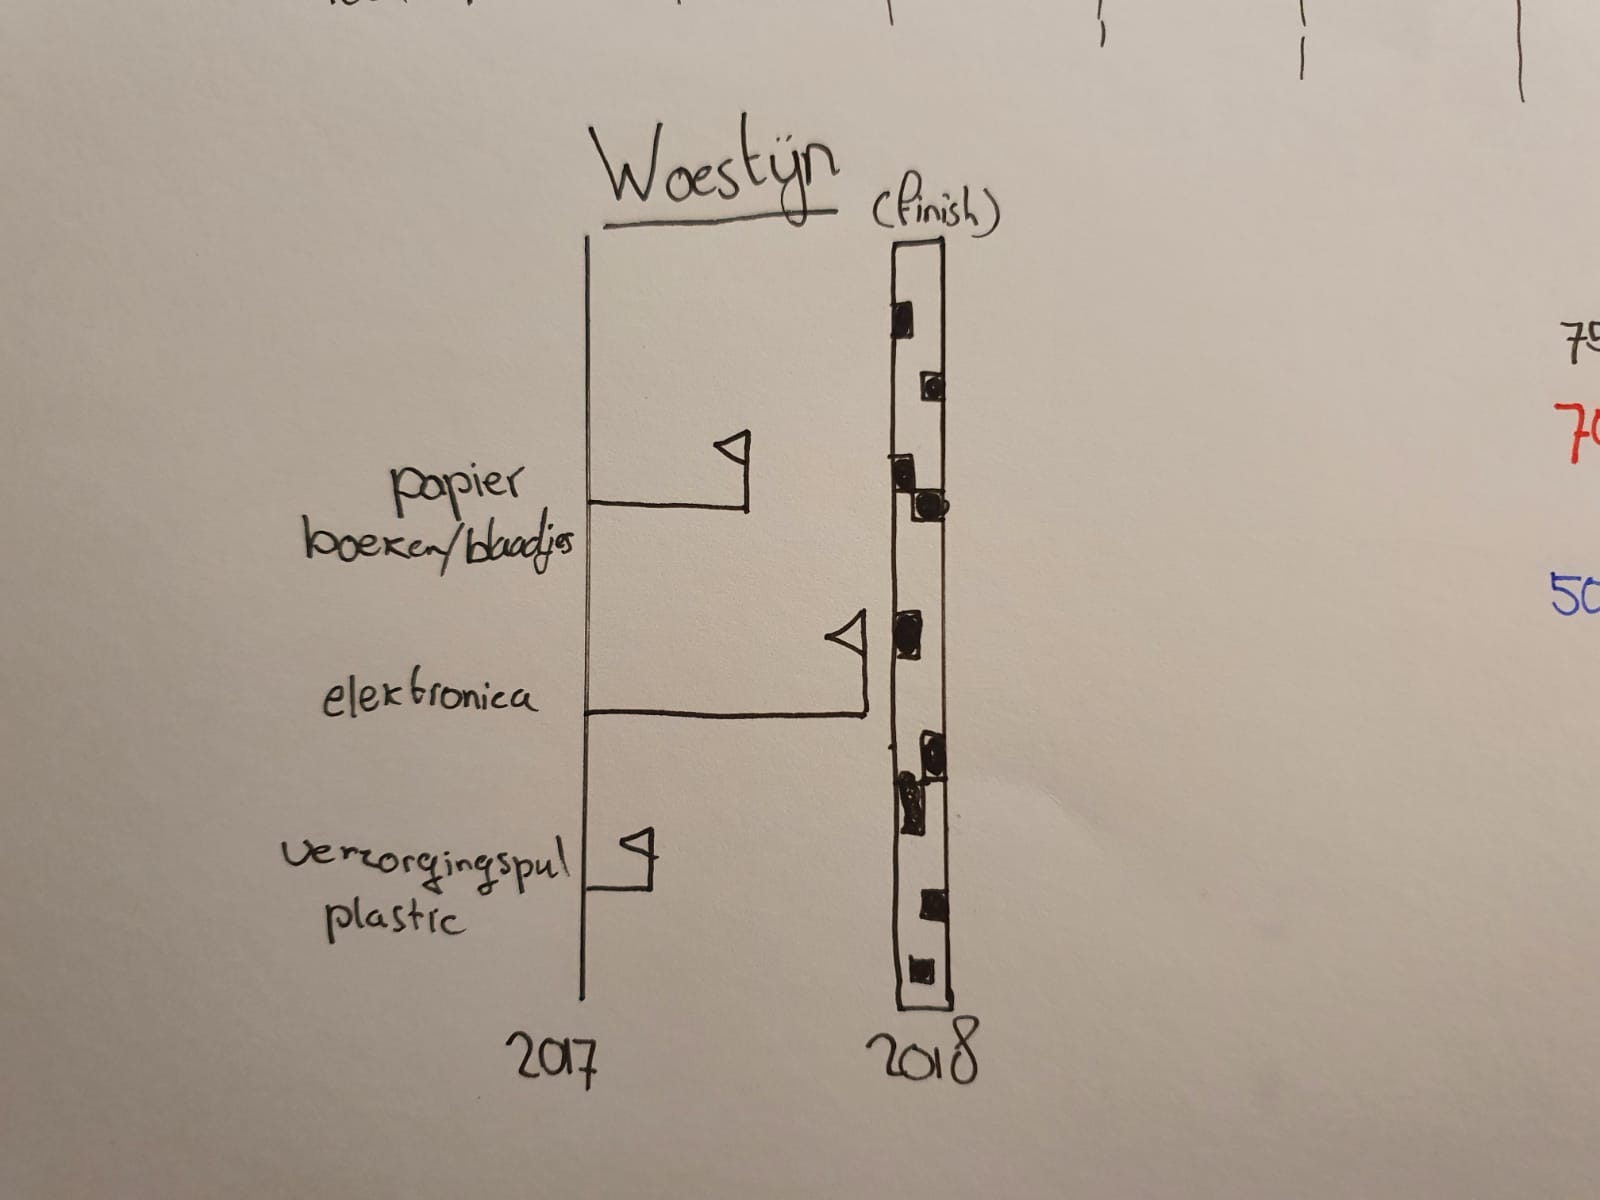 Woestijn
(finish)
papier
boeken/blaadjes
elektronica
verzorgingspul
plastic
2017
2018
50